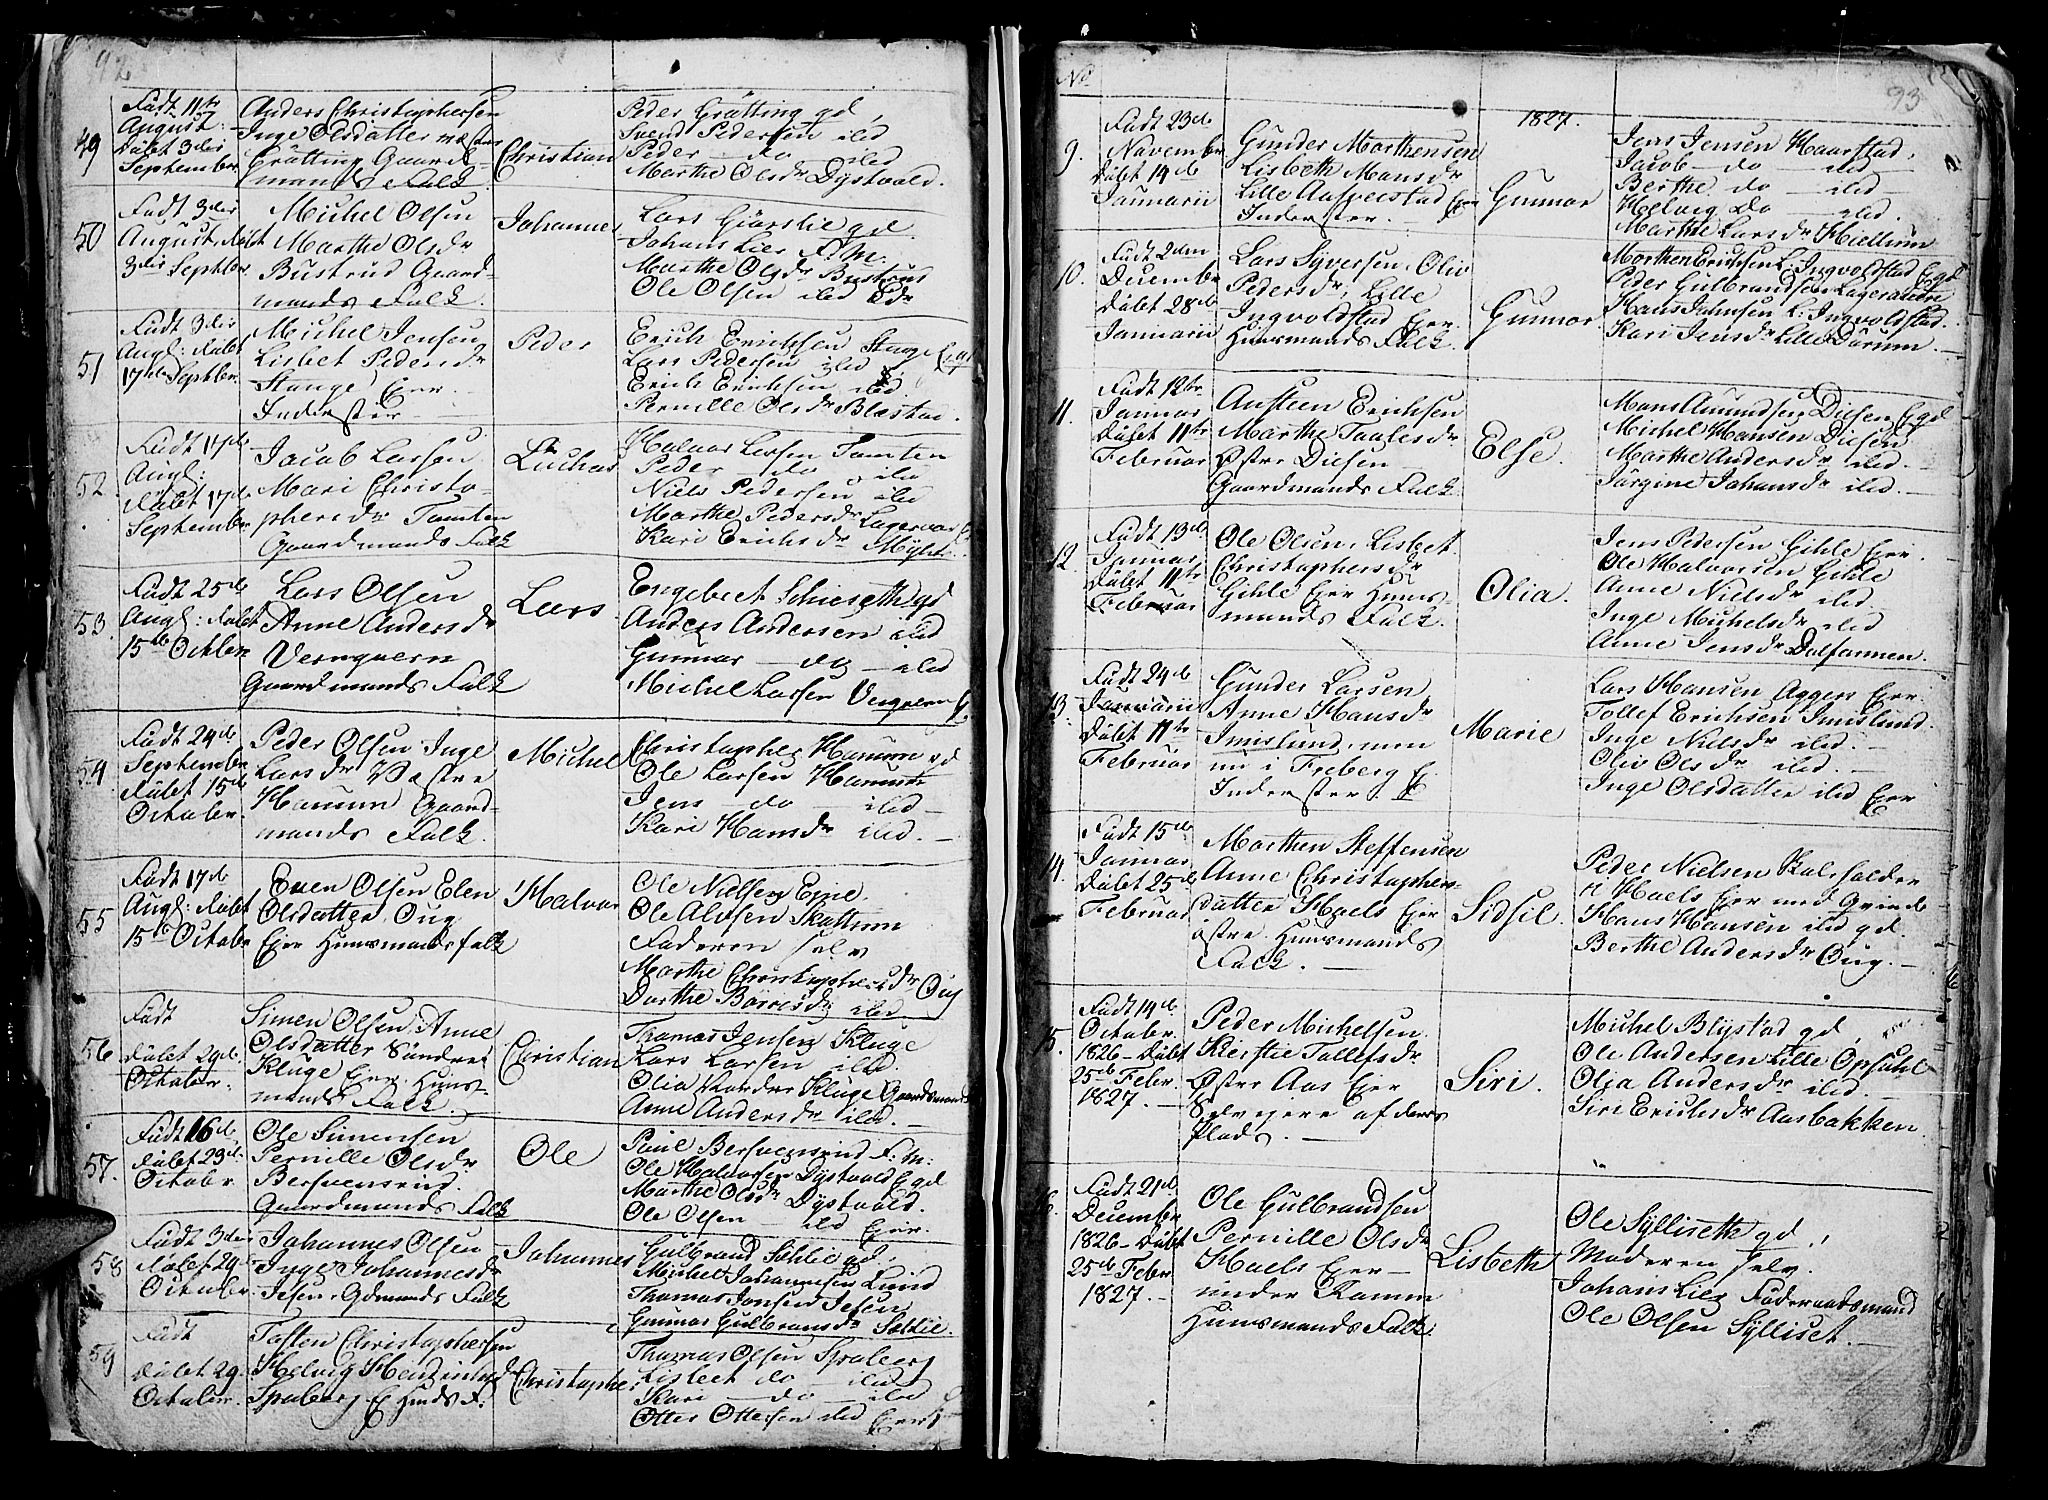 92
49
Født 11te
August
Døbt 3die
September
Anders Christophersen
Inge Olsdatter
Gaard-
mands Falk
Christian
Peder Grötting gd,
Svend Pedersen ibid
Peder do ibid
Marthe Olsdr Dystvold.
50
Født 3die
August, døbt
3die Septbr.
Michel Olsen
Marthe Olsdr
Bustrud Gaard-
mands Falk.
Johannes
Lars Giörslie gd.
Johans Lier F. M:
Marthe Olsdr Bustrud
Ole Olsen ibid
51
Født 3die
Augl: døbt
17de Septbr.
Michel Jensen
Lisbet Pedersdr
Stange Eier
Inderster
Peder
Erich Erichsen Stange
Lars Pedersen ibid
Erich Erichsen ibid
Pernille Olsdr Blæstad.
52.
Født 17de
Augl:
døbt 17de
September
Jacob Larsen
Mari Christo-
phersdr Tomten
Gaardmands Falk
Luchas
Halvor Larsen Tomten
Peder do ibid
Niels Pedersen ibid
Marthe Pedersdr
Kari Erichsdr
53.
Født 25de
Augl: døbt
15de Octbr
Lars Olsen
Anne Andersdr
Vernquern
Gaardmands Falk
Lars
Engebret Schiesethe gd
Anders Andersen ibid
Gunnar do ibid
Michel Larsen
54.
Født 24de
September
døbt 15de
October.
Peder Olsen Inge
Larsdr Vestre
Hanum Gaard-
mands Falk.
Michel
Christopher Hanum gd
Ole Larsen Hanum
Jens do ibid
Kari Hansdr ibid.
55
Født 17de
Augl: døbt
15de Octobr
Even Olsen Elen
Olsdatter Oug
Eier Huusmandsfalk
Halvor
Ole Nielsen Eine
Ole Alvsen Skattum
Faderen selv
Marthe Christophersdr Oug
Dorthe ibid
56
Født
døbt 29de
October.
Simen Olsen, Anne
Olsdatter Søndre
Kluge Eier Huus-
mands Falk.
Christian
Thomas Jensen Kluge
Lars Larsen ibid.
Olia Kluge Gaardmands
Anne Andersdr ibid.
57.
Født 16de
døbt 23de
Octobr.
Ole Simensen
Pernille Olsdr
Bersvensrud
Gaardmands Falk
Ole
Paul Bersvensrud F: M:
Ole Halvorsen Dystvold
Marthe Olsdr Dystvold.
Ole Olsen ibid Eier.
58
Født 3die
døbt 29de
October.
Johannes Olsen
Inge Johannesdr
Jesen, Gdmands Falk
Johannes
Gulbrand Søhlie gd.
Michel Johannesen Lund
Thomas Jonsen Jesen
Gunnor Gulbransdr Søhlie.
59
Født
døbt 29de
October.
Tosten Christophersen
Helvig
Spaberg Huusds F.
Christopher
Thomas Olsen Spaberg
Lisbet do ibid
Kari do ibid
Otter Ottersen ibid Eier
No
93
1827.
9.
Født 23de
Novembr
Døbt 14de
Januarii
Gunder Morthensen
Lisbeth Hansdr
Lille
Inderster.
Gunnor
Jens Jensen Haarstad,
Jacob do ibid
Berthe do ibid.
Helvig do ibid.
Marthe Larsdr Hiellum
10.
Født 2den
Decembr
Døbt 28de
Januarii
Lars Syversen, Oliv
Pedersdr, Lille
Ingvoldstad Eier
Huusmands Falk.
Gunnor
Morthen Erichsen L: Ingvoldstad
Peder Gulbrandsen
Hans Johnsen L: Ingvoldstad.
Kari Jensdr Lille Dørum.
11.
Født 12te
Januar
Døbt 11te
Februar
Austeen Erichsen
Marthe Taalesdr
Østre Diesen
Gaardmands Falk.
Else.
Mons Amundsen Diesen
Michel Hansen Diesen
Marthe Andersdr ibid.
Jörgine Johansdr ibid.
12.
Født 13de
Januar
Døbt 11te
Februar
Ole Olsen, Lisbet
Christophersdr
Gihle Eier Huus-
mands Falk.
Olia.
Jens Pedersen Gihle Eier.
Ole Halvorsen Gihle
Anne Nielsdr ibid.
Inge Michelsdr ibid
Anne Jensdr
13.
Født 24de
Januarii
Døbt 11te
Februar
Gunder Larsen
Anne Hansdr
Imislund, men
nu i Freberg
Inderster.
Marie
Lars Hansen Aggers Eier
Tollef Erichsen Imislund.
Inge Nielsdr ibid.
Oliv Olsdr ibid.
Inge Olsdatter ibid Eier
14.
Født 15de
Januar
Døbt 25de
Februar
Morthen Steffensen
Anne Christophers-
datter Haels Eier
østre Huusmands
Falk.
Sidsel.
Peder Nielsen
Haels Eier med Qvinde
Hans Hansen ibid gd.
Berthe Andersdr Oug.
15.
Født 14de
Octobr.
1826 - Døbt
25de Febr.
1827.
Peder Michelsen
Kierstie Tollefsdr
Østre Aas Eier
Selveiere af deres
Plads.
Siri.
Michel Blystad gd,
Ole Andersen Lille Opsahl
Olia Andersdr ibid.
Siri Erichsdr Aasbakken.
Født 21de
Decembr
1826 - Døbt
25de Febr
1827.
Ole Gulbrandsen
Pernille Olsdr
Haels Eier
under Ramm
Huusmands Falk.
Lisbeth
Ole Sylliseth gd,
Moderen selv.
Johans Lier Føderaadsmand
Ole Olsen Sylliset.